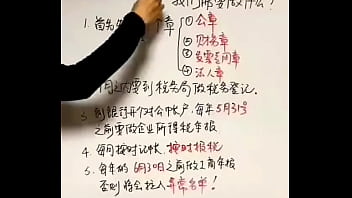 我们需要做什么？
1. 首先 章
① 公章
② 财务章
③ 发票专用章
④ 法人章
月之内需要到税务局做税务登记。
3. 到银行开对公帐户，每年5月31号
之前需做企业所得税年报
4. 每月按时记帐，按时报税
5. 每年的6月30日之前做工商年报
否则将会拉入异常名单！